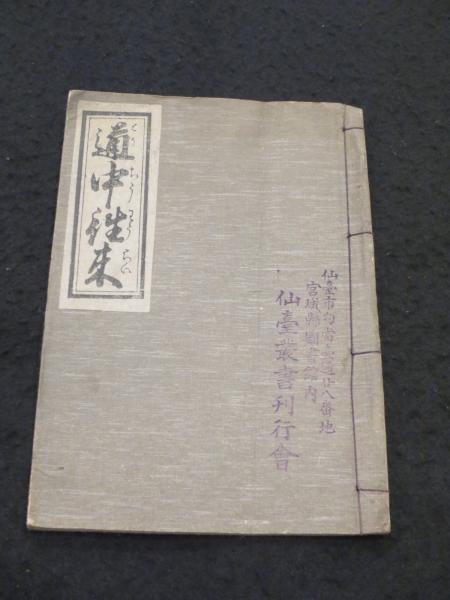 道中往来
どうちうわうらい
仙臺市勾當臺通廿八番地
宮城縣圖書館內
仙臺叢書刊行會